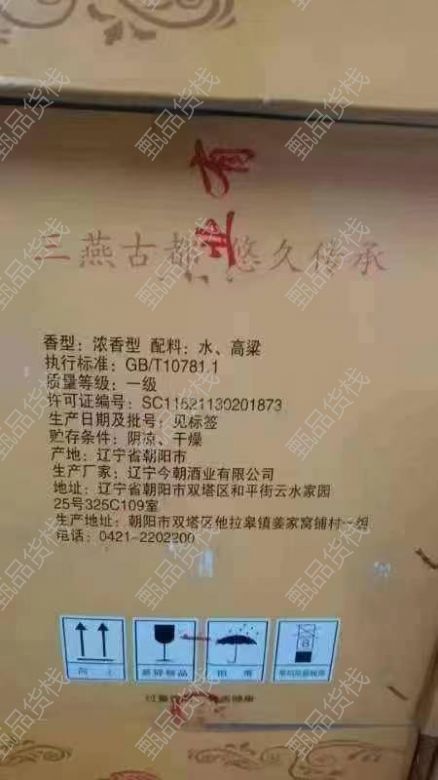 有
三燕古都 悠久传承
香型：浓香型 配料：水、高粱
执行标准：GB/T10781.1
质量等级：一级
许可证编号：SC11521130201873
生产日期及批号：见标签
贮存条件：阴凉、干燥
产地：辽宁省朝阳市
生产厂家：辽宁今朝酒业有限公司
地址：辽宁省朝阳市双塔区和平街云水家园
25号325C109室
生产地址：朝阳市双塔区他拉皋镇姜家窝铺村一组
电话：0421-2202200
向上
易碎物品
怕雨
甄品货栈